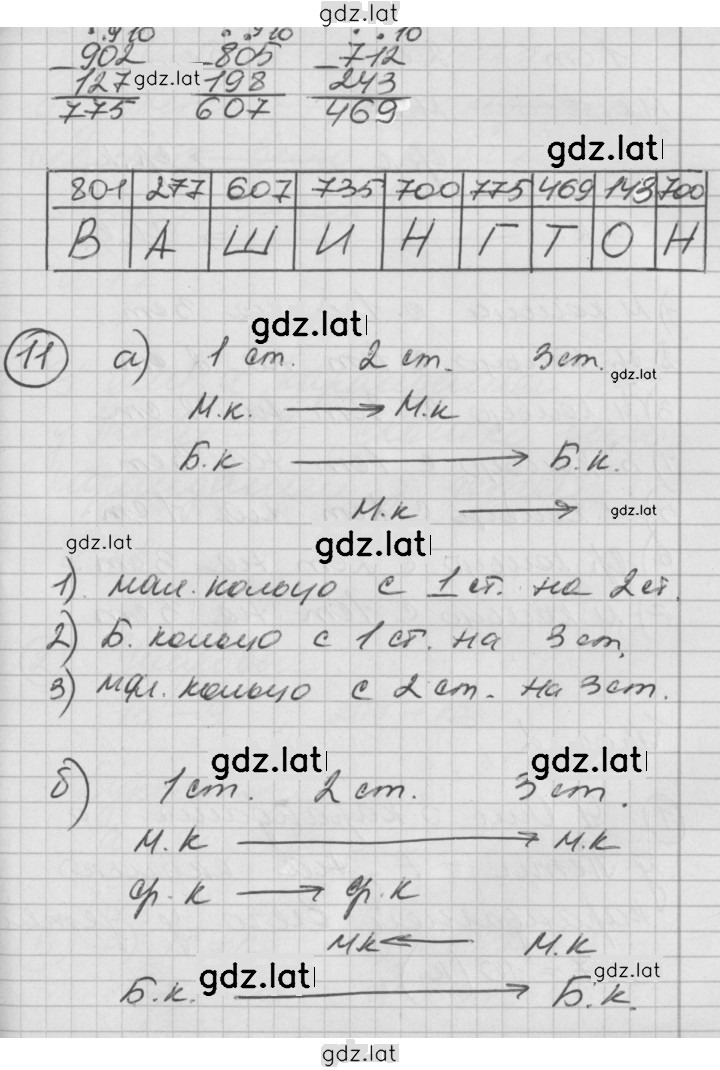 gdz.lat
. . 9 10 . . 9 10 . . 10
- 902 - 805 - 712
127 gdz.lat 198 243
775 607 469
gdz.lat
801 277 607 735 700 775 469 143 700
В А Ш И Н Г Т О Н
gdz.lat
11 а) 1 ст. 2 ст. 3 ст.
gdz.lat
М.к. → М.к
Б.к → Б.к.
М.к → gdz.lat
gdz.lat gdz.lat
1) мал. кольцо с 1 ст. на 2 ст.
2) Б. кольцо с 1 ст. на 3 ст.
3) мал. кольцо с 2 ст. на 3 ст.
gdz.lat gdz.lat
б) 1 ст. 2 ст. 3 ст.
м.к → м.к
ср.к → ср.к
м.к ← м.к
gdz.lat gdz.lat
Б.к. → Б.к.
gdz.lat